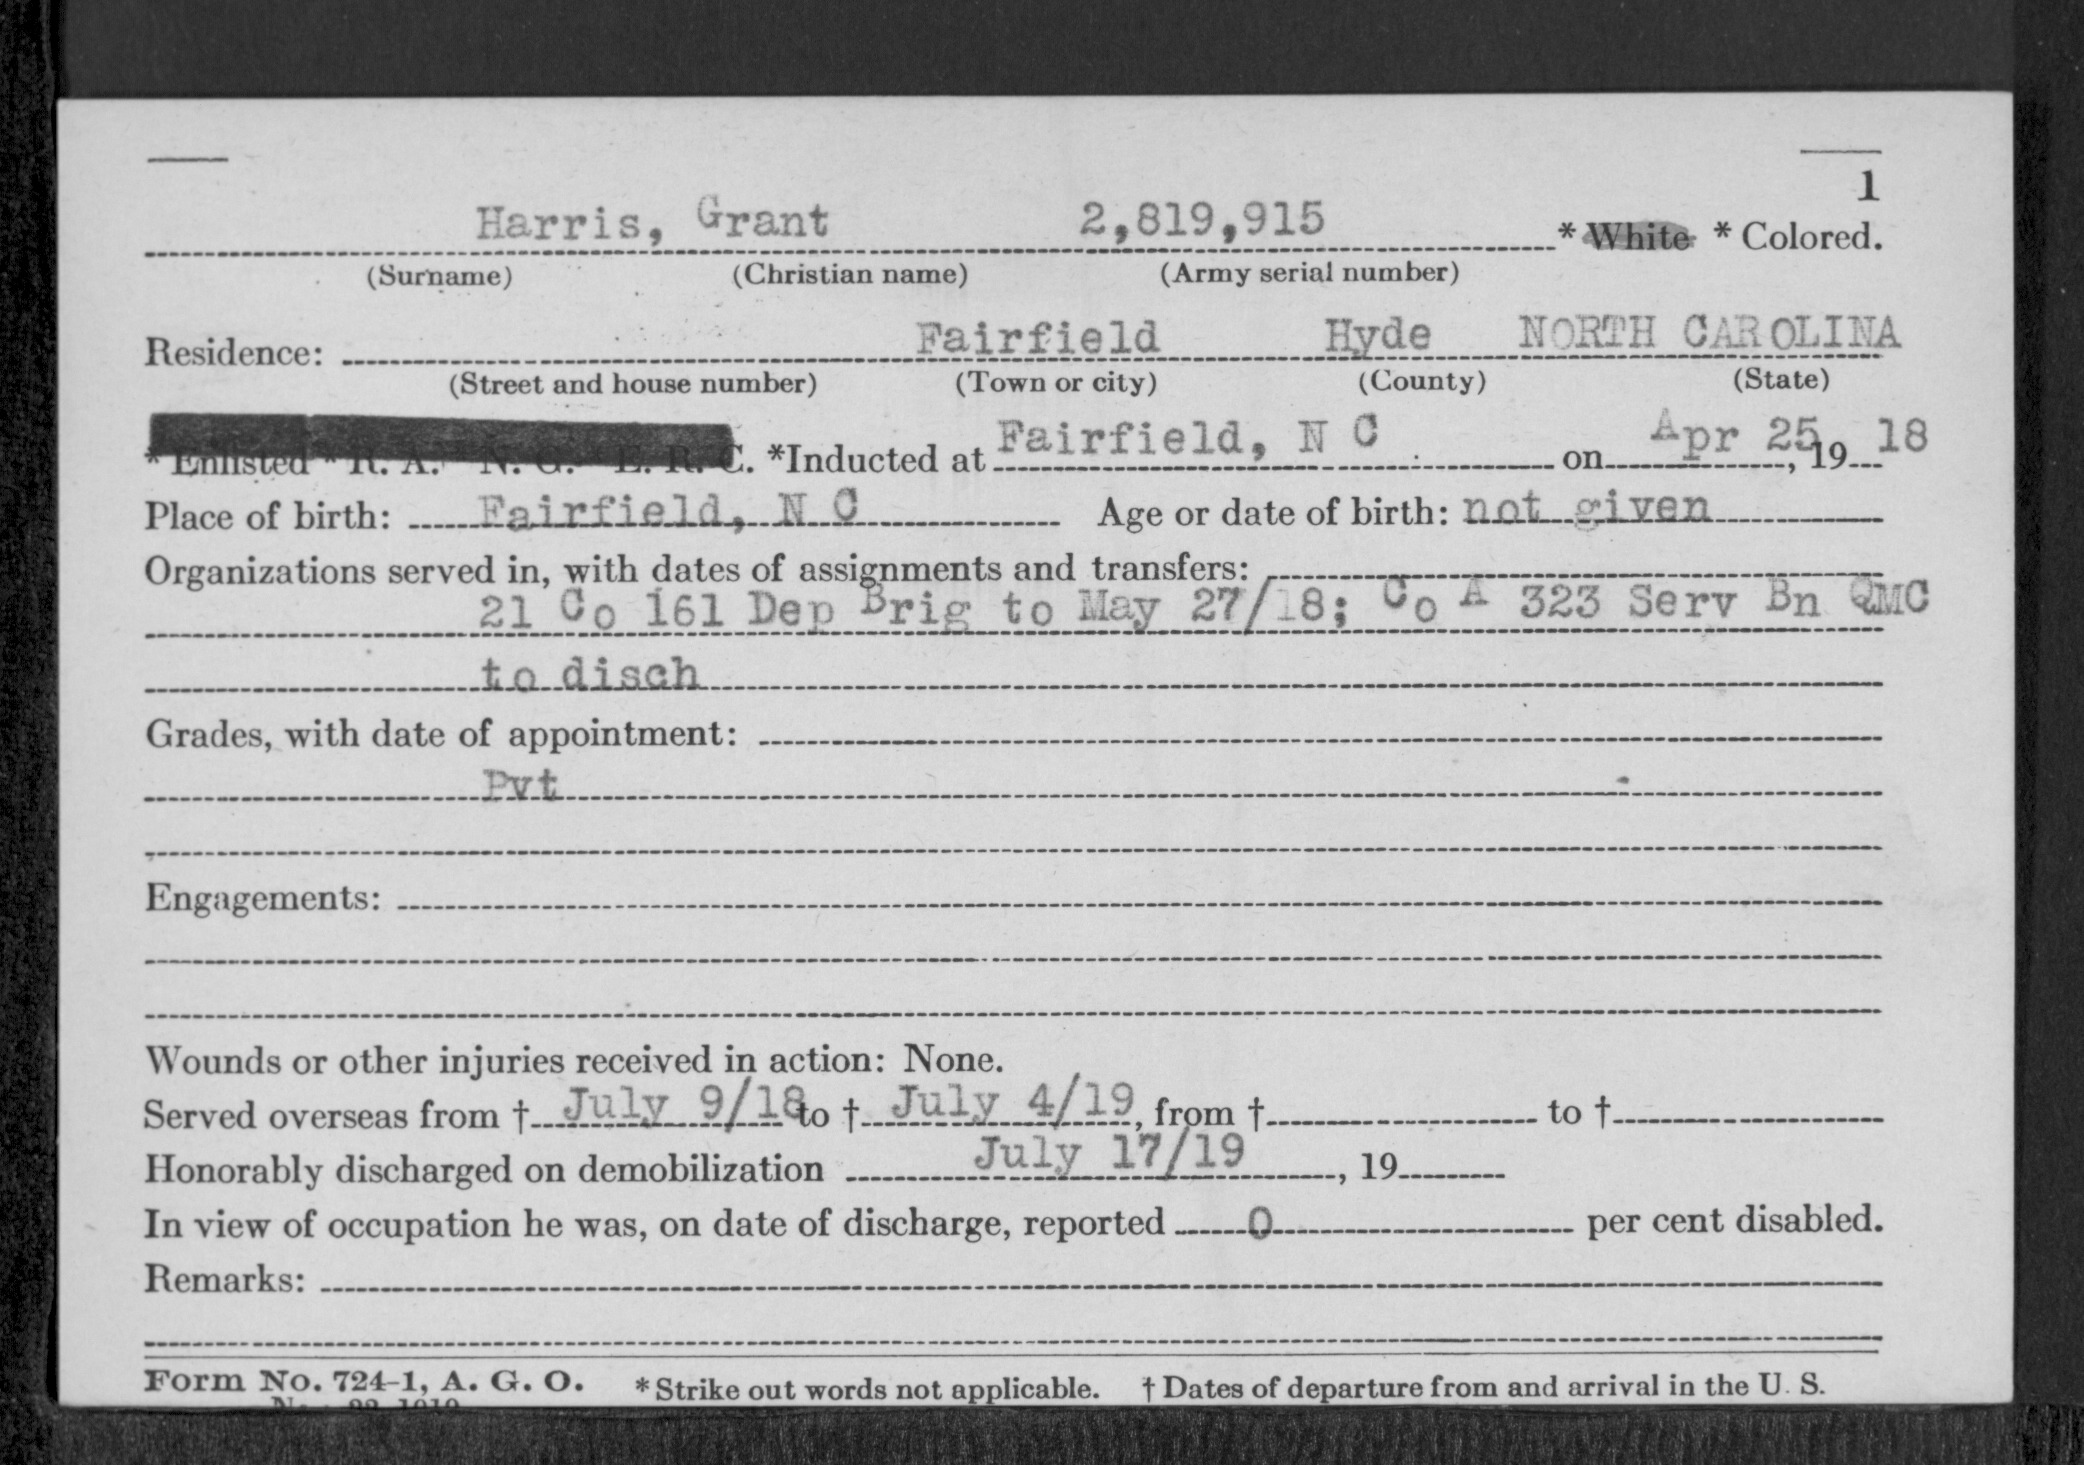 1
Harris, Grant 2,819,915 * White * Colored.
(Surname) (Christian name) (Army serial number)
Residence: Fairfield Hyde NORTH CAROLINA
(Street and house number) (Town or city) (County) (State)
* Enlisted * R. A. * N. G. * E. R. C. *Inducted at Fairfield, N C on Apr 25, 19 18
Place of birth: Fairfield, N C Age or date of birth: not given
Organizations served in, with dates of assignments and transfers:
21 Co 161 Dep Brig to May 27/18; Co A 323 Serv Bn QMC
to disch
Grades, with date of appointment:
Pvt
Engagements:
Wounds or other injuries received in action: None.
Served overseas from † July 9/18 to † July 4/19, from † to †
Honorably discharged on demobilization July 17/19, 19
In view of occupation he was, on date of discharge, reported 0 per cent disabled.
Remarks:
Form No. 724-1, A. G. O. * Strike out words not applicable. † Dates of departure from and arrival in the U. S.